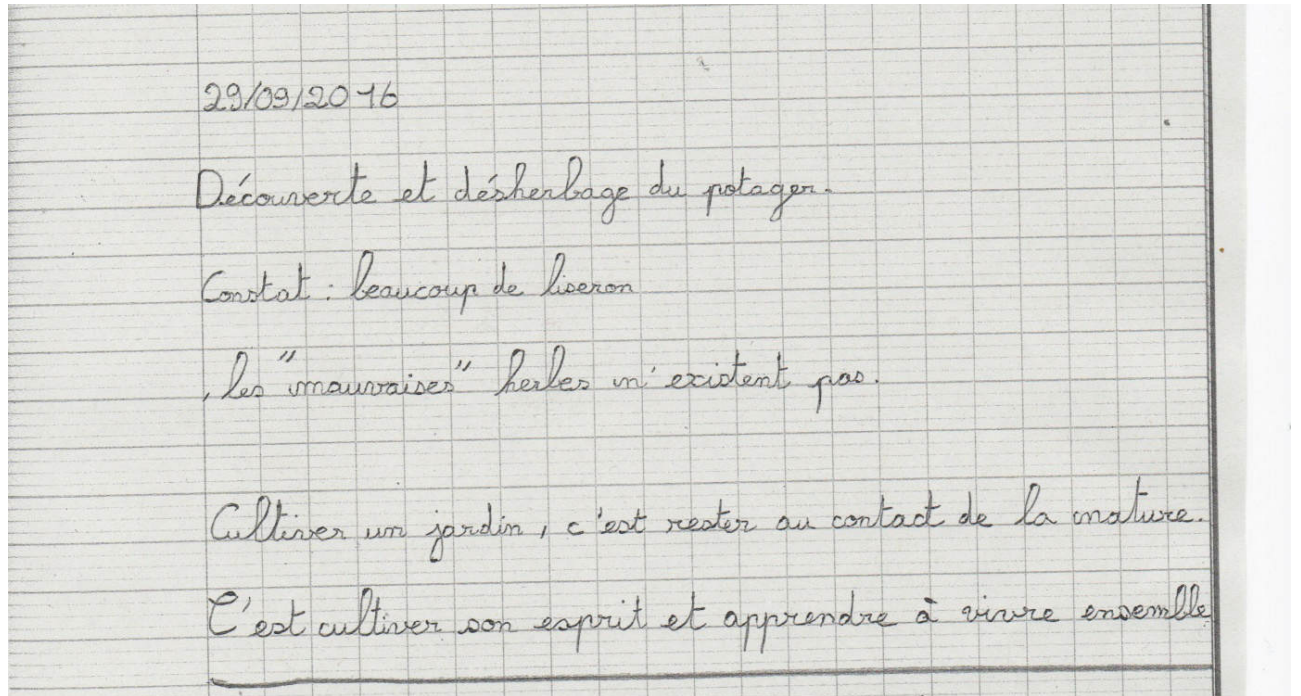 29/09/2016
Découverte et désherbage du potager.
Constat : beaucoup de liseron
, les "mauvaises" herbes n'existent pas.
Cultiver un jardin, c'est rester au contact de la nature.
C'est cultiver son esprit et apprendre à vivre ensemble